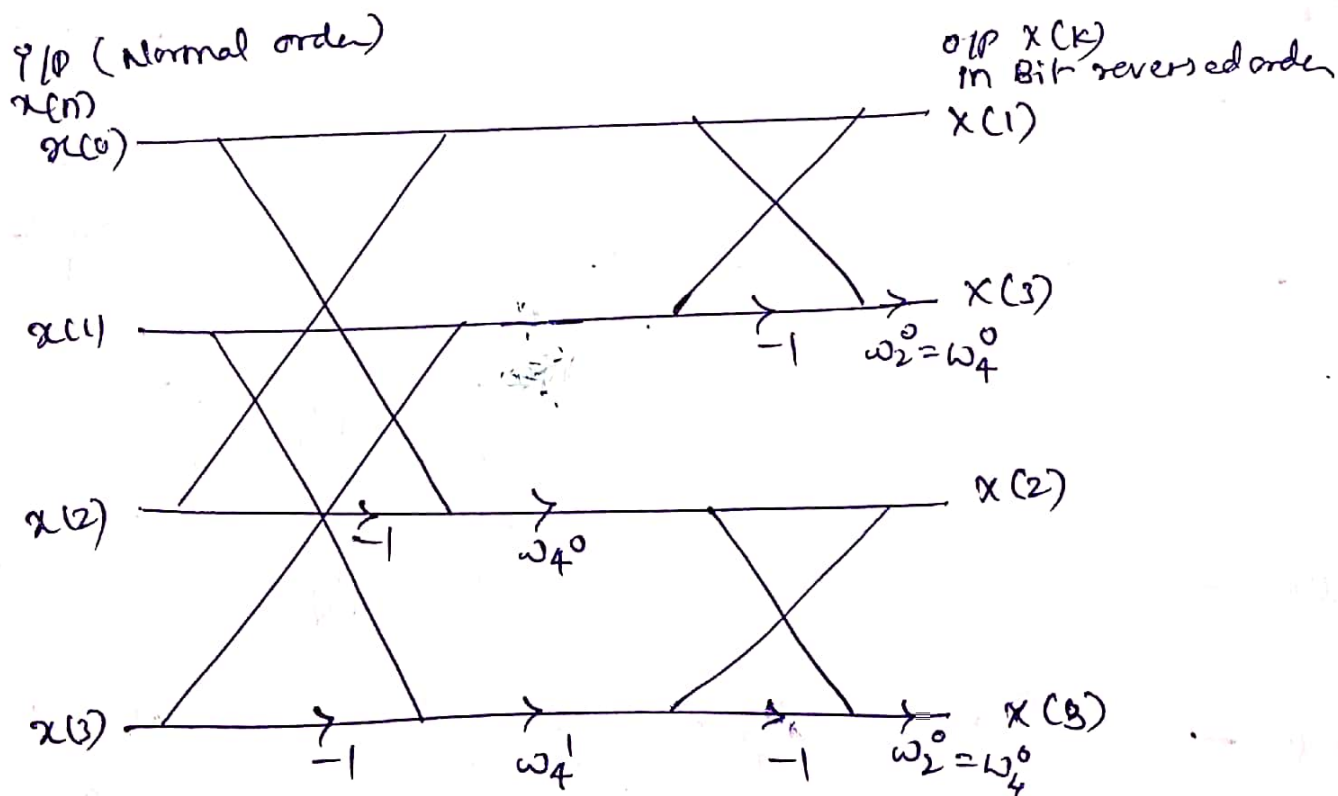 I/P (Normal order)
x(n)
O/P X(K)
in Bit reversed order
x(0)
X(1)
x(1)
X(3)
-1
ω₂⁰ = ω₄⁰
x(2)
X(2)
-1
ω₄⁰
x(3)
X(3)
-1
ω₄¹
-1
ω₂⁰ = ω₄⁰